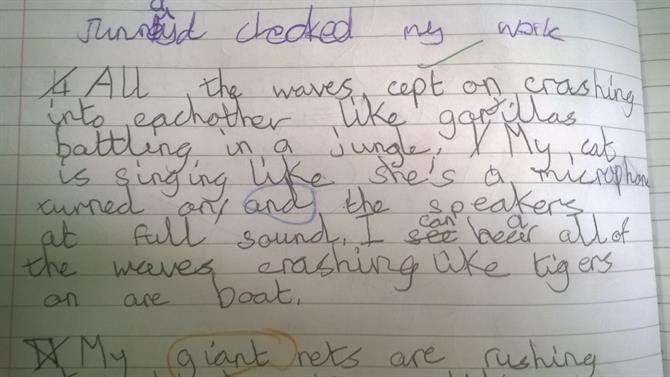 checked my work
All the waves cept on crashing
into eachother like gorillas
battling in a jungle. My cat
is singing like she's a microphone
turned on, and the speakers
at full sound. I can see hear all of
the waves crashing like tigers
on are boat.
My giant nets are rushing